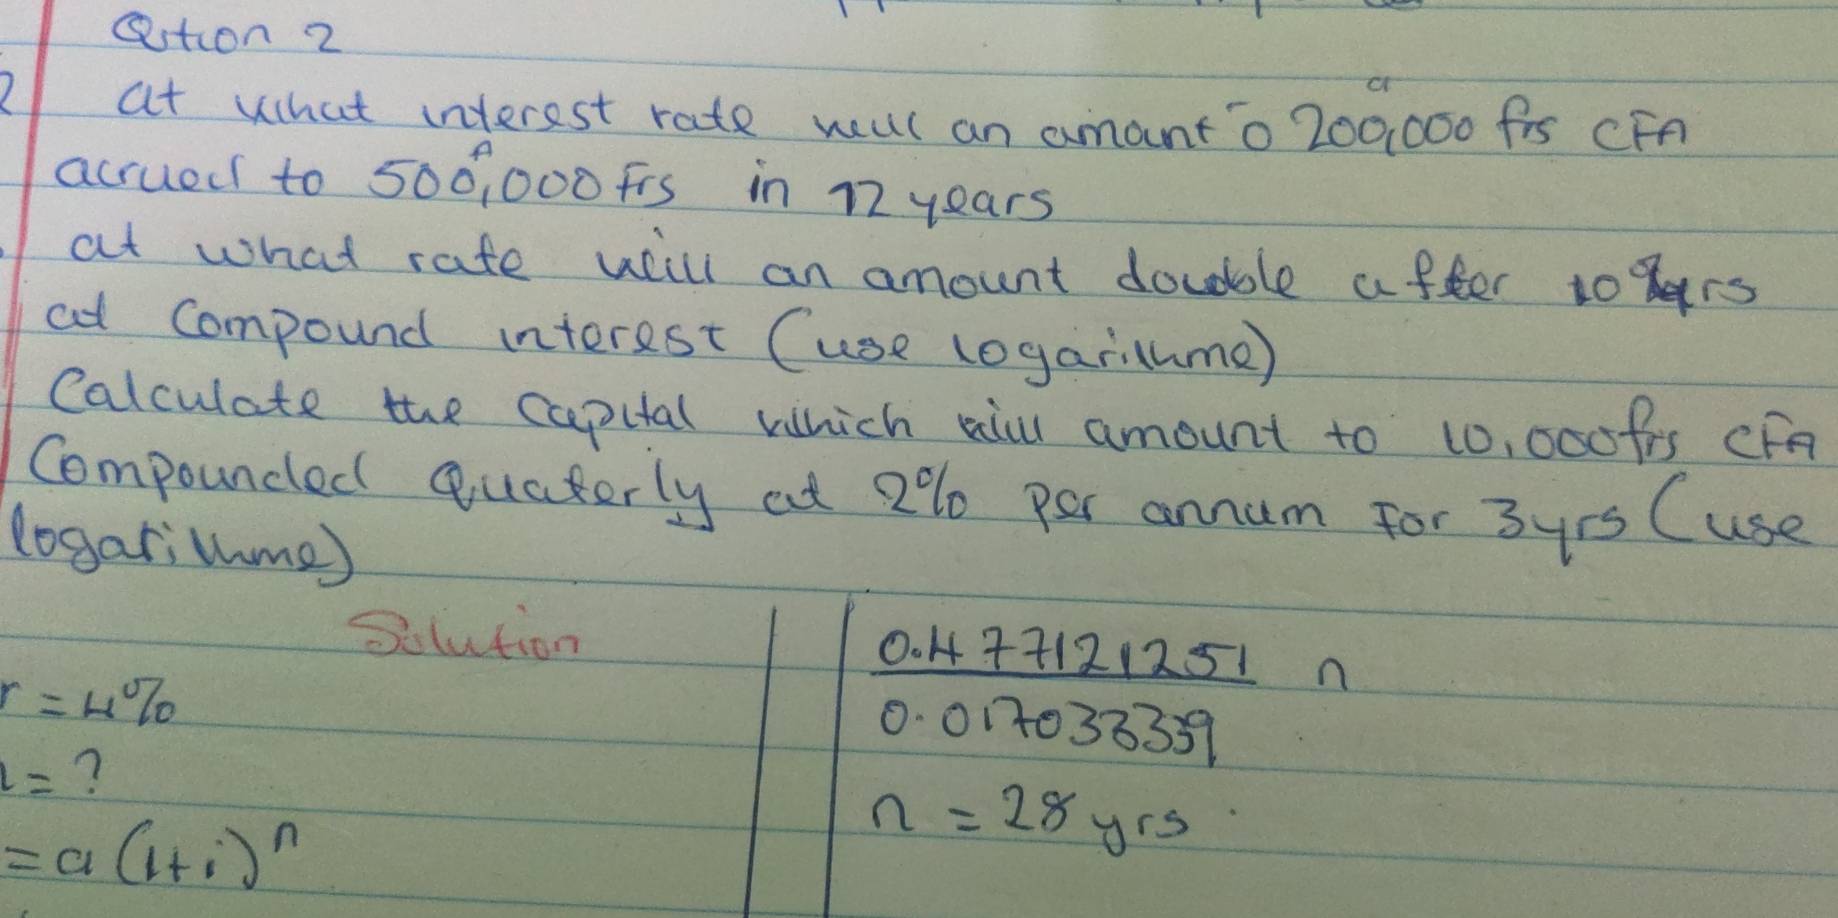 Qstion 2
2 at what interest rate will an amount o 200,000 frs CFA
a
acrued to 500,000 Frs in 12 years
A
at what rate will an amount double after 10 yrs
at compound interest (use logarithme)
Calculate the capital which will amount to 10,000 frs CFA
Compounded Quaterly at 2% per annum For 3yrs (use
logarithme)
Solution
r = 4%
= ?
= a (1+i)^n
0.477121251 n
0.017033339
n = 28 yrs.